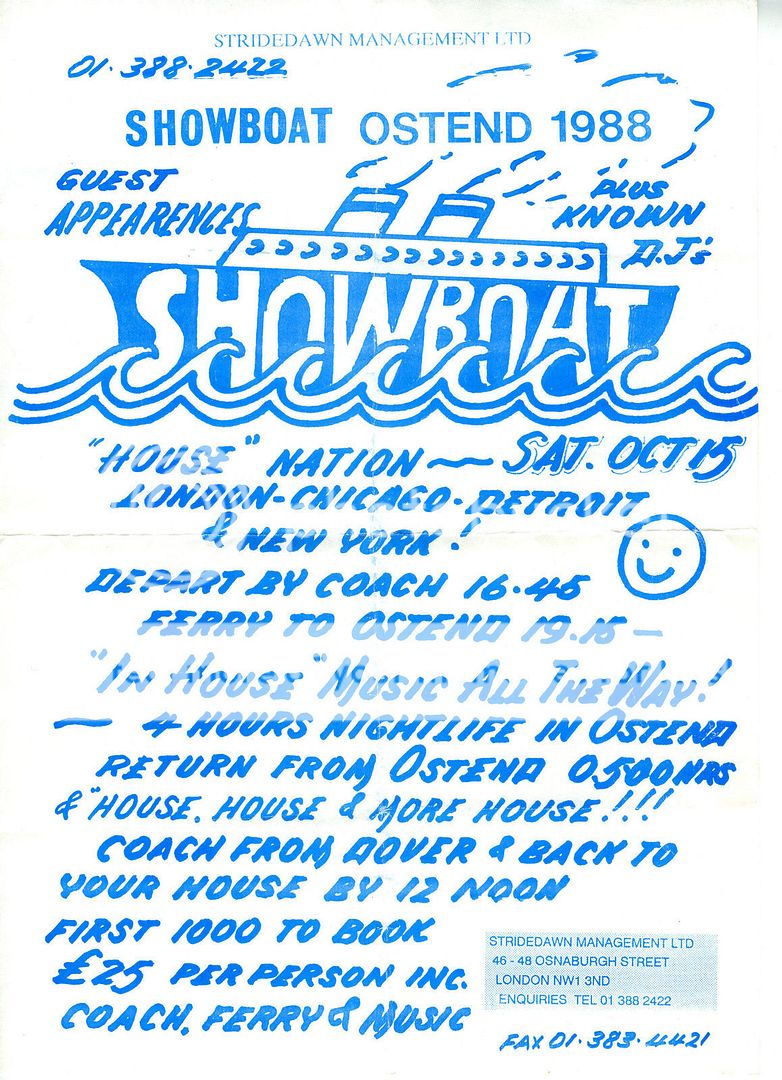 STRIDEDAWN MANAGEMENT LTD
01·388·2422
SHOWBOAT OSTEND 1988
GUEST
APPEARENCES
PLUS
KNOWN
D.J's
SHOWBOAT
"HOUSE" NATION — SAT. OCT 15
LONDON-CHICAGO-DETROIT
& NEW YORK!
DEPART BY COACH 16.45
FERRY TO OSTEND 19.15 —
"IN HOUSE" MUSIC ALL THE WAY!
— 4 HOURS NIGHTLIFE IN OSTEND
RETURN FROM OSTEND 0500HRS
& "HOUSE, HOUSE & MORE HOUSE!!!!
COACH FROM DOVER & BACK TO
YOUR HOUSE BY 12 NOON
FIRST 1000 TO BOOK
£25 PER PERSON INC.
COACH, FERRY & MUSIC
STRIDEDAWN MANAGEMENT LTD
46 - 48 OSNABURGH STREET
LONDON NW1 3ND
ENQUIRIES TEL 01 388 2422
FAX 01·383·4421